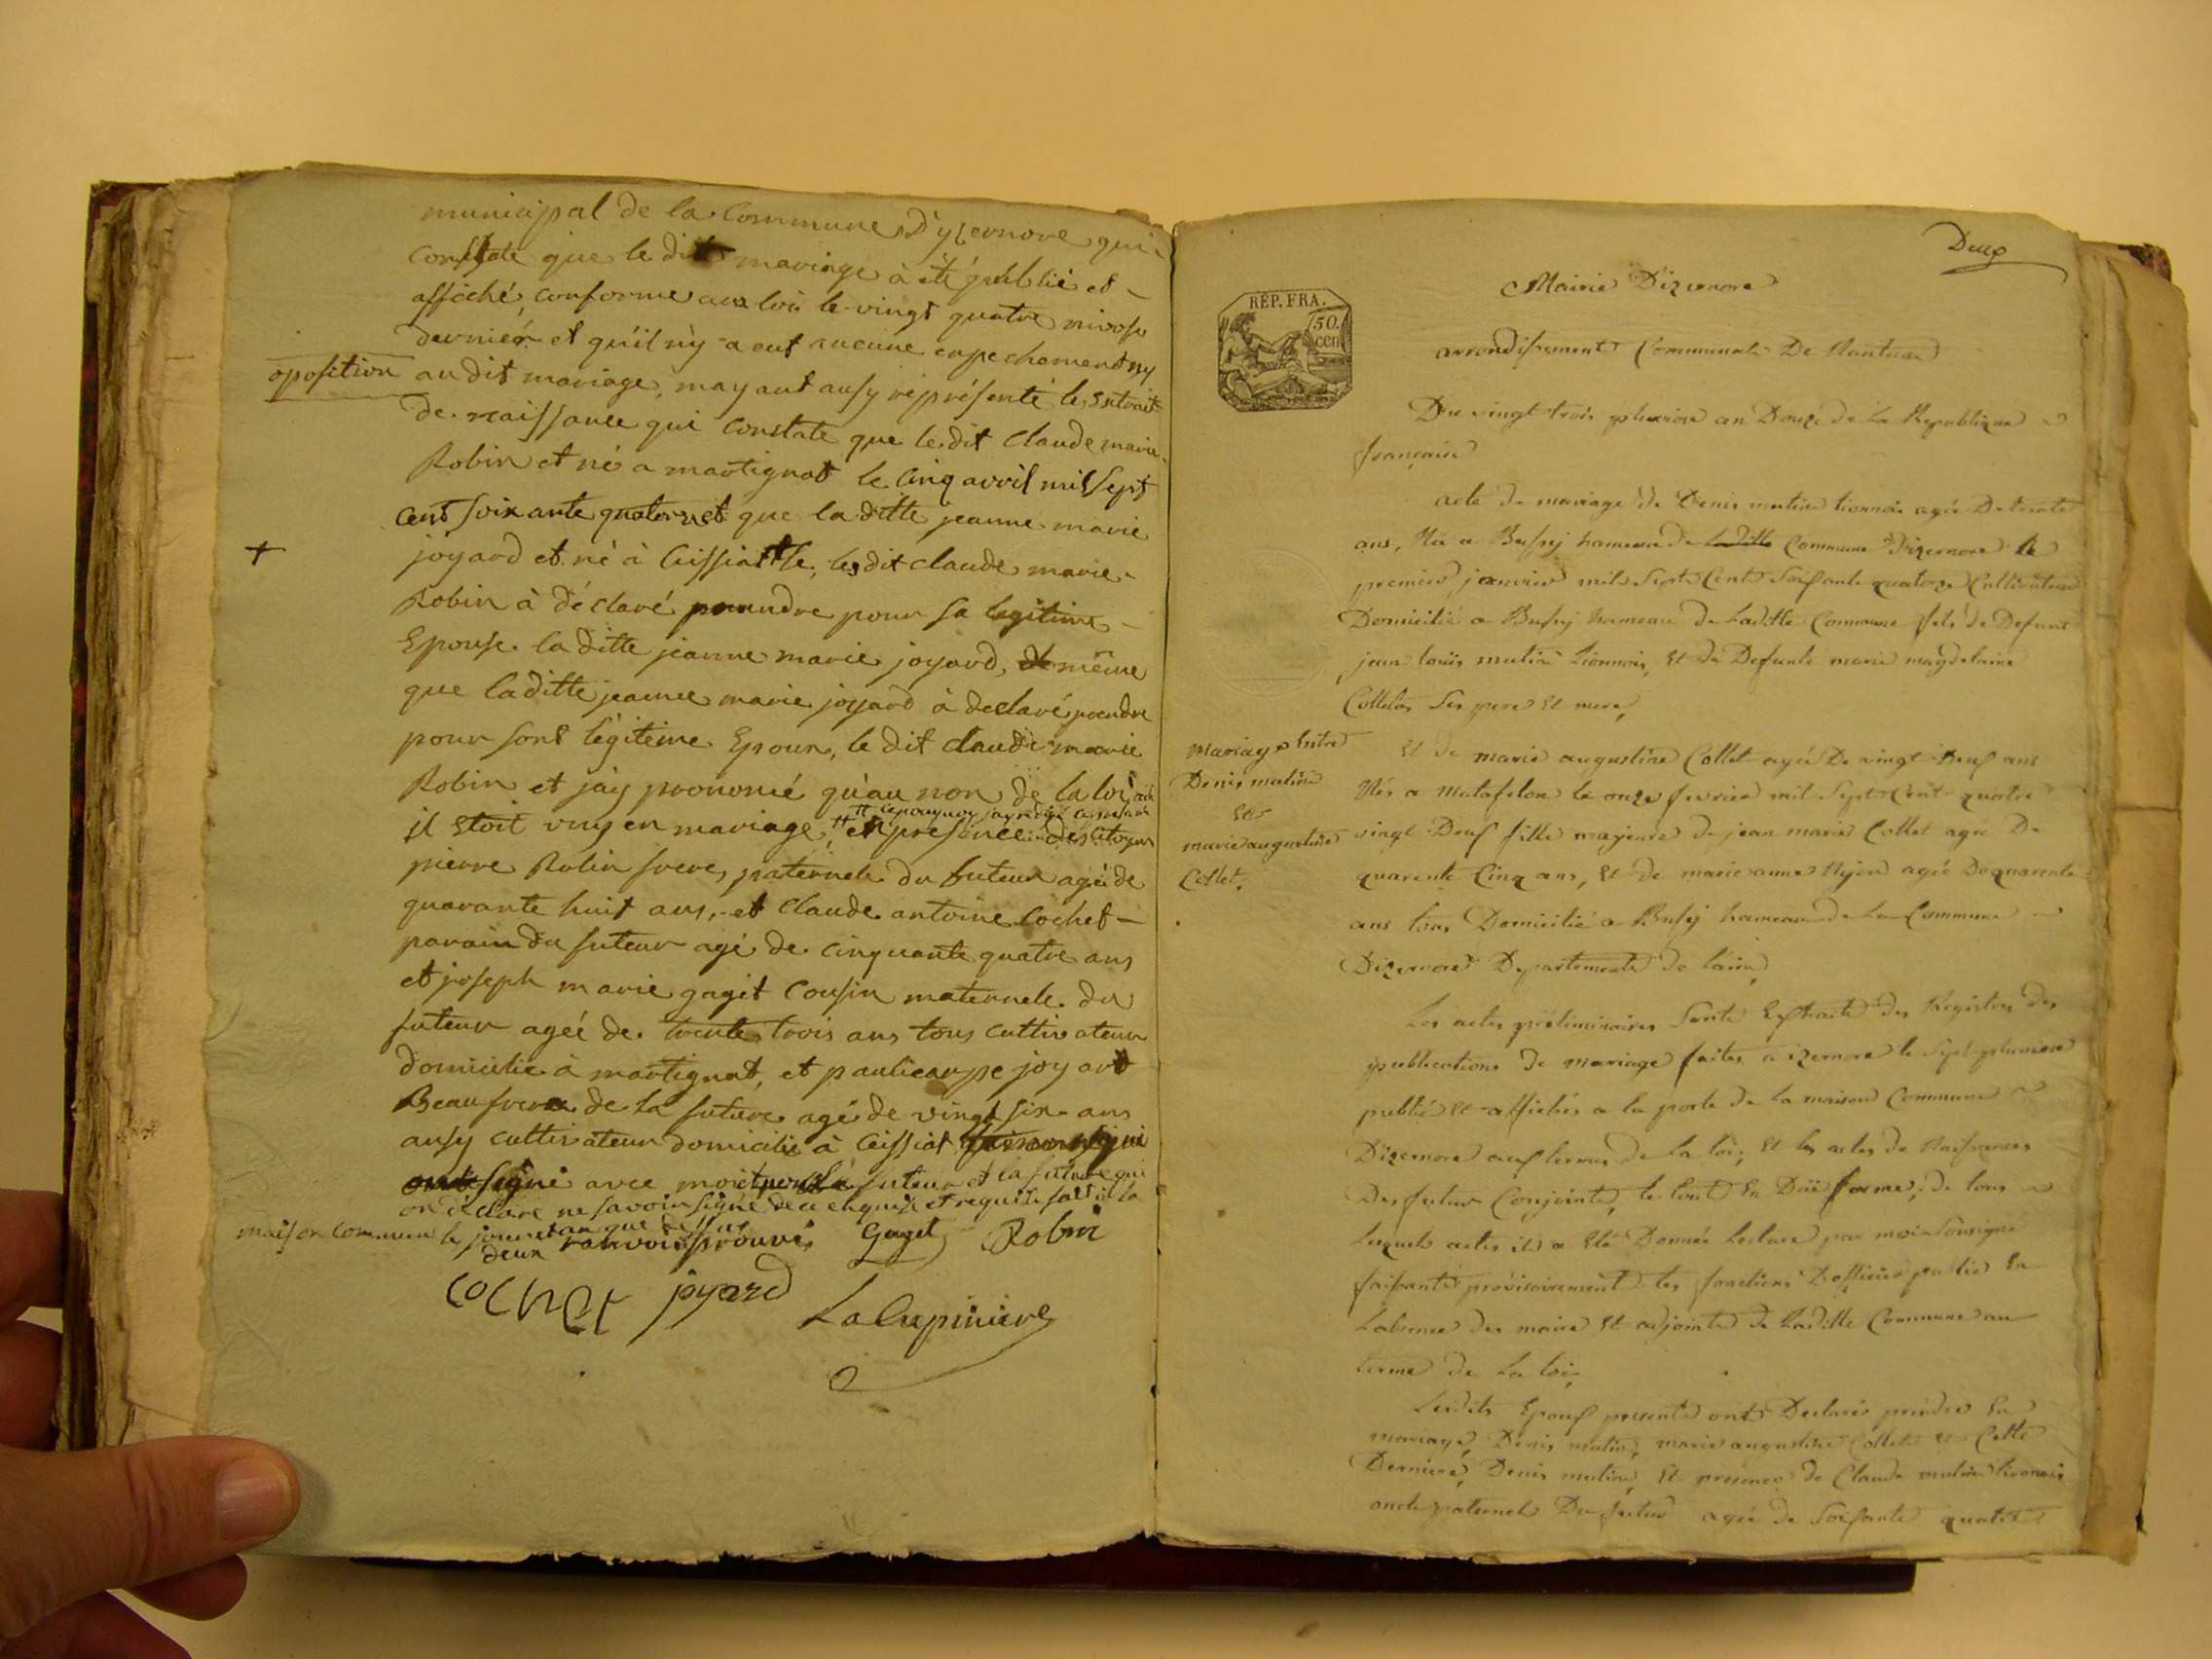 municipal de la Commune D'yzernore qui
constate que le dit mariage à été publié et
affiché, conforme aux loix le vingt quatre nivose
dernier et qu'il n'y a eut aucune empechement ny
oposition au dit mariage, mayant ausy représenté les extrait
de naissance qui constate que le dit Claude marie
Robin et né a martignat le cinq avril mil sept
cent soixante quatorze et que la ditte jeanne marie
joyard et né à Ceissiat le, les dit claude marie
Robin à déclaré prendre pour sa legitime
Epouse la ditte jeanne marie joyard, de même
que laditte jeanne marie joyard à declaré prendre
pour sont légitime Epoux, le dit claude marie
Robin et j'ay prononcé qu'au non de la loi
il etoit uny en mariage, en presence des citoyens
pierre Robin frere, paternele du futeur agé de
quarante huit ans, et Claude antoine Cochet
parain du futeur agé de cinquante quatre ans
et joseph marie gaget Cousin maternele du
futeur ageé de trente trois ans tous cultivateur
domicilié à martignat, et paulicarpe joyard
Beaufrere de la future agé de vingt six ans
ausy cultivateur domicilié à Ceissiat qui
ont signé avec moi le futeur et la future qui
on déclaré ne savoir signé de ce enquis et requis fait à la
maison commune le jour et an que dessus
deux ranvoi aprouvés Gaget Robin
cochet joyard
La Cupiniere
Deux
RÉP. FRA.
50.
cen
Mairie D'izernore
arrondissement Communale De Nantua
Du vingt trois pluviose an Douze de La Republique
française
acte de mariage de Denis mutin lionnois agé De trente
ans, Née a Bussy hameau de laditte Commune d'izernore le
premier janvier mil Sept Cent Soisante quatorze Cultivateur
Domicilié a Bussy hameau de Laditte Commune fils de Defunt
jean louis mutin lionnois, et de Defunte marie magdelaine
Colleton Ses pere et mere,
Mariage Entre
Denis mutin
et
marie augustine
Collet.
Et de marie augustine Collet agée De vingt Deux ans
Née a Matafelon le onze fevrier mil Sept Cent quatre
vingt Deux fille majeure de jean marie Collet agé De
quarente Cinq ans, et de marie anne agée De quarente
ans tous Domicilié a Bussy hameau de La Commune
Dizernore Departement de lain,
Les actes préliminaires Sont Extraits des Registres des
publications de mariage faites a izernore le Sept pluviose
publié et affichés a la porte de La maison Commune
Dizernore aux termes de La loi, et les actes de Naissances
Des futur Conjoints, le tout En Düe forme, de tous
Lesquels actes il a Eté Donnée Lecture par moi Sousigné
faisant provisoirement les fonctions Dofficier public En
Labsence des maire et adjoint de Laditte Commune au
terme de La loi,
Lesdits Epoux present ont Declarés prendre En
mariage, Denis mutin, marie augustine Collet et Cette
Derniere, Denis mutin, Et presence de Claude mutin lionnois
oncle paternel Du futur agé de Soisante quatre